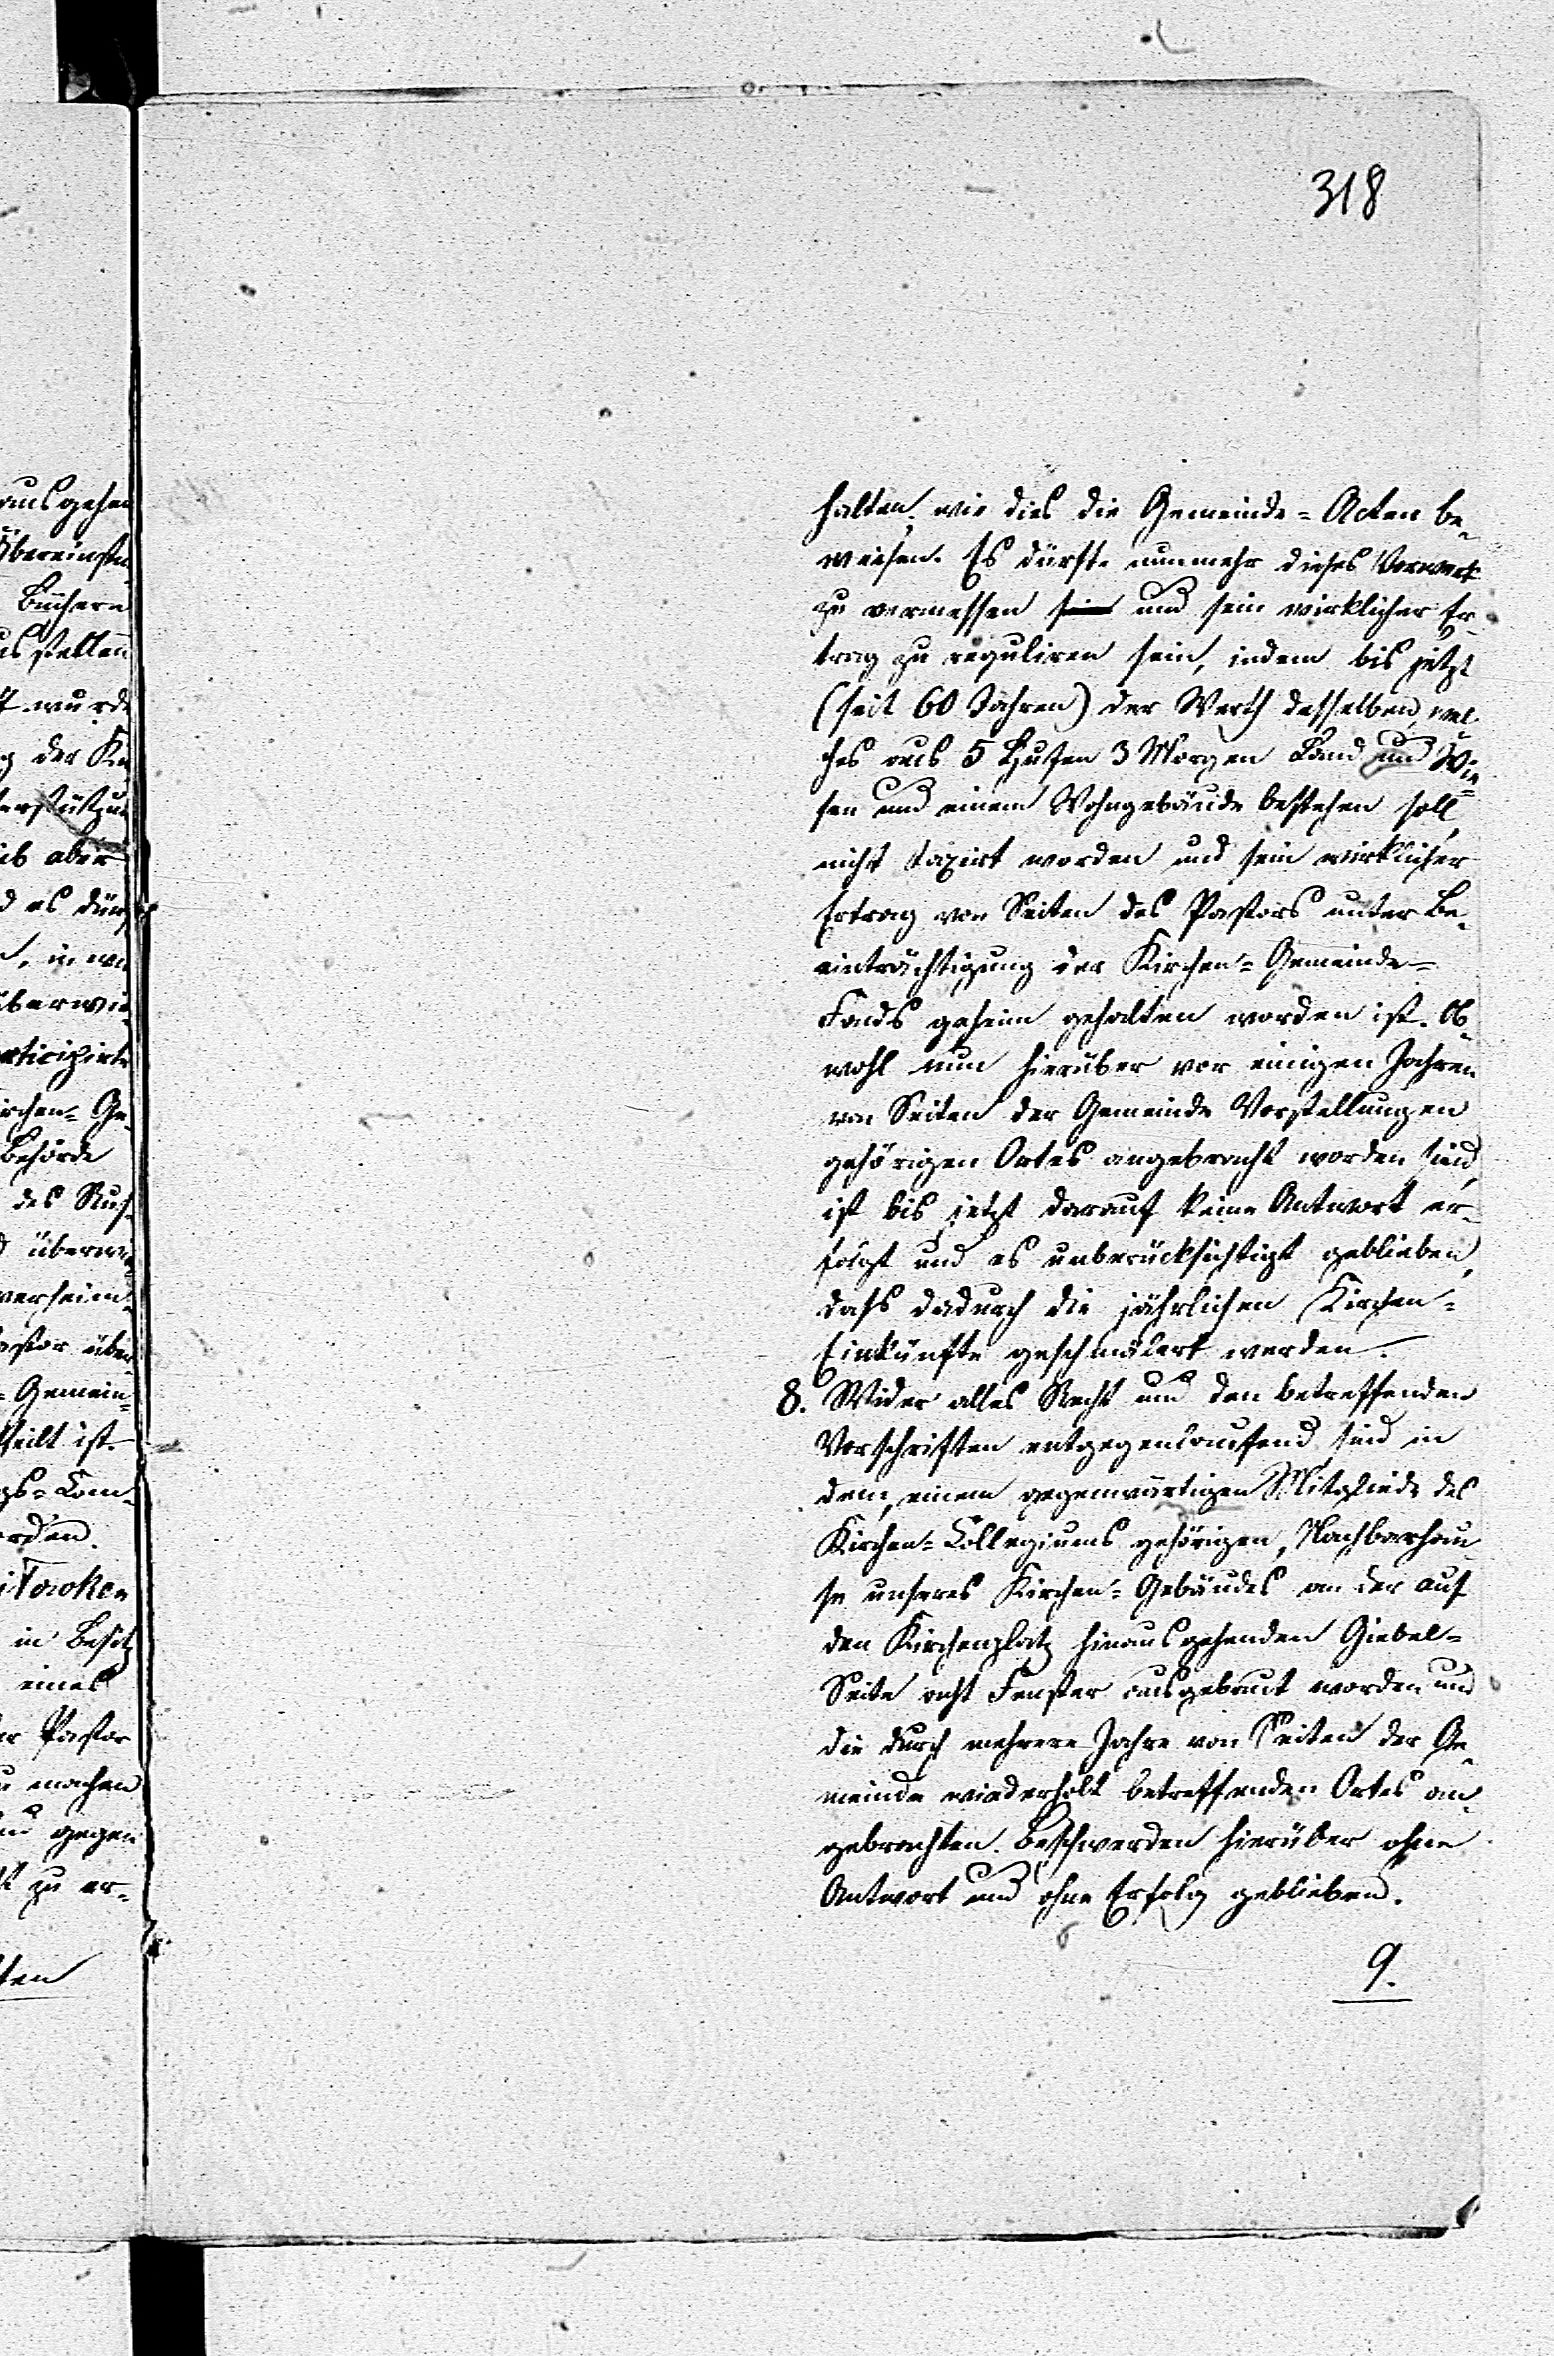 318
halten, wie dies die Gemeinde-Acten be-
weisen. Es dürfte nunmehr dieses Vorwerk
zu vermessen sein und sein wirklicher Er-
trag zu reguliren sein, indem bis jetzt
(seit 60 Jahren) der Werth desselben, wel-
ches aus 5 Hufen 3 Morgen Land und Wie-
sen und einem Wohngebäude bestehen soll,
nicht taxirt worden und sein wirklicher
Ertrag von Seiten des Pastors unter Be-
einträchtigung der Kirchen-Gemeinde-
Fonds geheim gehalten worden ist. Ob-
wohl nun hierüber vor einigen Jahren
von Seiten der Gemeinde Vorstellungen
gehörigen Ortes angebracht worden sind,
ist bis jetzt darauf keine Antwort er-
folgt und es unberücksichtigt geblieben,
dass dadurch die jährlichen Kirchen-
Einkünfte geschmälert werden.
8. Wider alles Recht und den betreffenden
Vorschriften entgegenlaufend sind in
dem, einem gegenwärtigen Mitgliede des
Kirchen-Collegiums gehörigen, Nachbarhau-
se unseres Kirchen-Gebäudes an der auf
den Kirchenplatz hinausgehenden Giebel-
Seite acht Fenster ausgebaut worden und
die durch mehrere Jahre von Seiten der Ge-
meinde wiederholt betreffenden Ortes an-
gebrachten Beschwerden hierüber ohne
Antwort und ohne Erfolg geblieben.
9.
ausgehen
Büchern
wurde
der
aber
es
Behörde
des
über
Gemein-
theilt ist.
in Besitz
eines
Pastor
machen
gegen
zu er-
ten